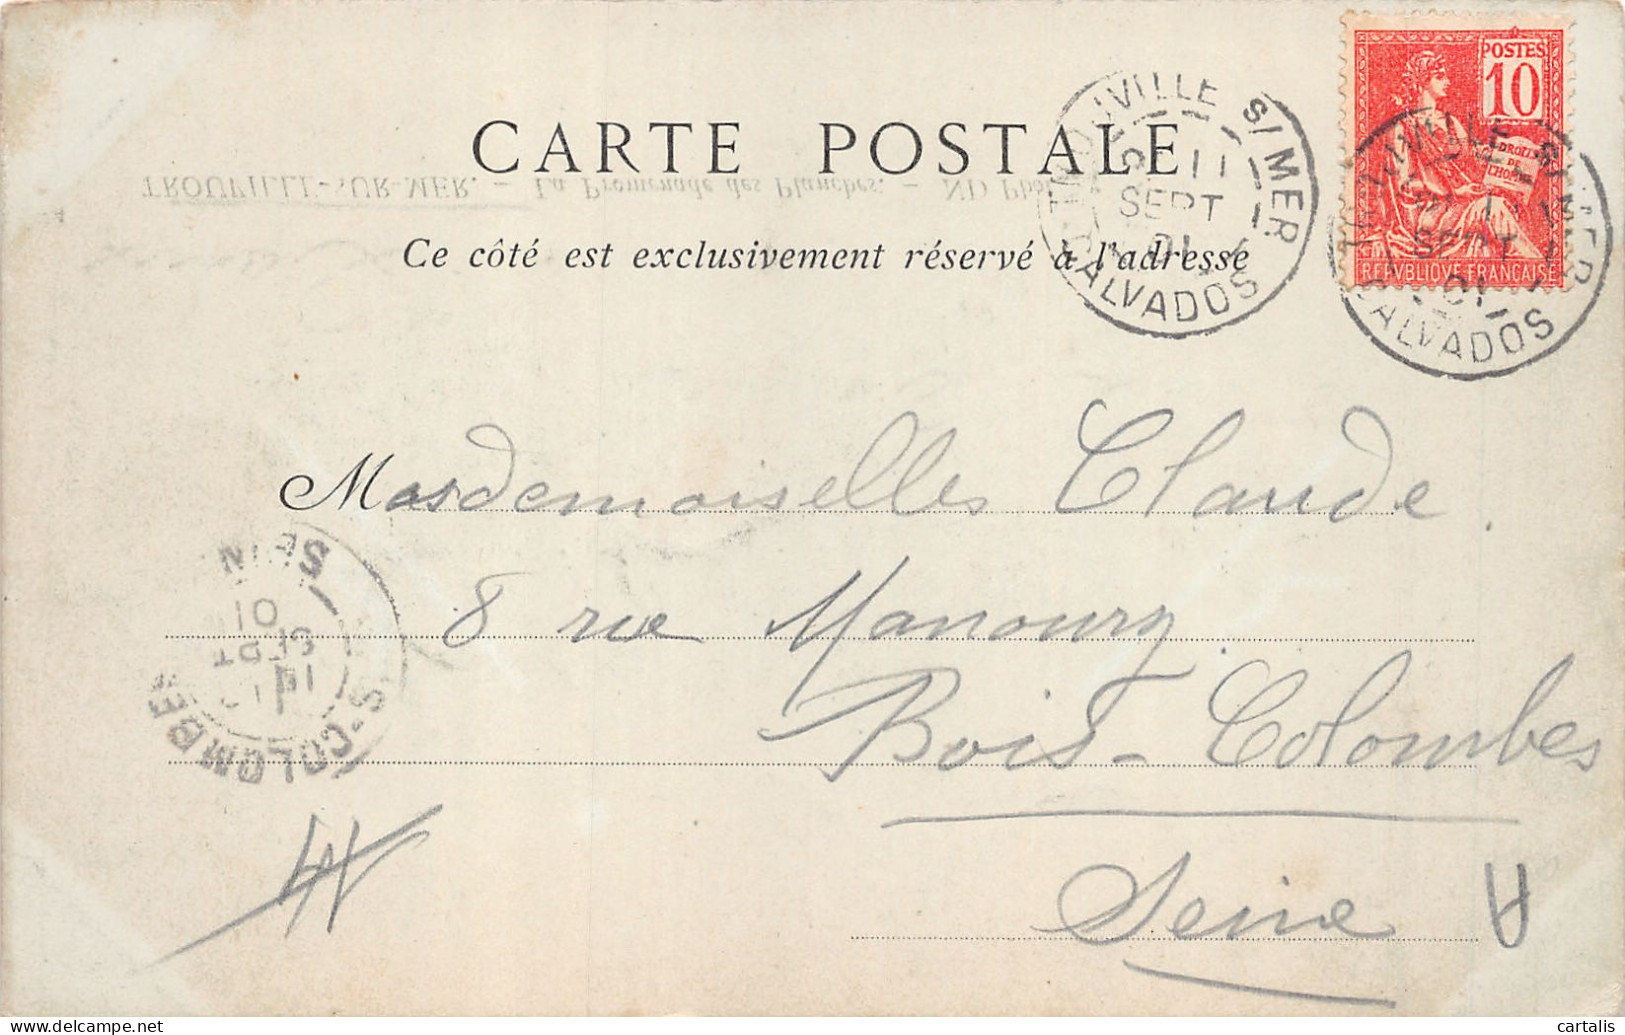 CARTE POSTALE
TROUVILLE-SUR-MER. — La Promenade des Planches. — ND Phot.
Ce côté est exclusivement réservé à l'adresse
TROUVILLE S/ MER
11
SEPT
01
CALVADOS
POSTES
10
DROITS
DE
L'HOMME
REPVBLIQVE FRANÇAISE
TROUVILLE S/ MER
SEPT
01
CALVADOS
Mesdemoiselles Claude.
8 rue Manoury
Bois-Colombes
Seine
A
01
SEPT
S-COLOMBES
cartalis
delcampe.net